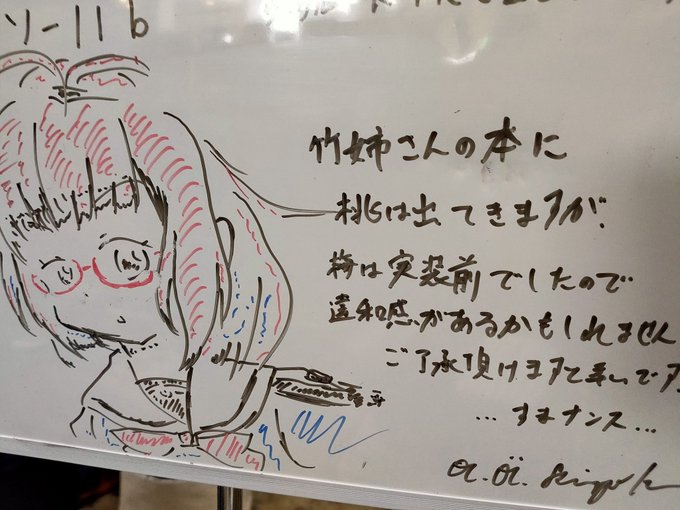 ソ-11b
竹姉さんの本に
桃は出てきますが、
梅は実装前でしたので
違和感があるかもしれません
ご了承頂けますと幸いです
...すまナンス...